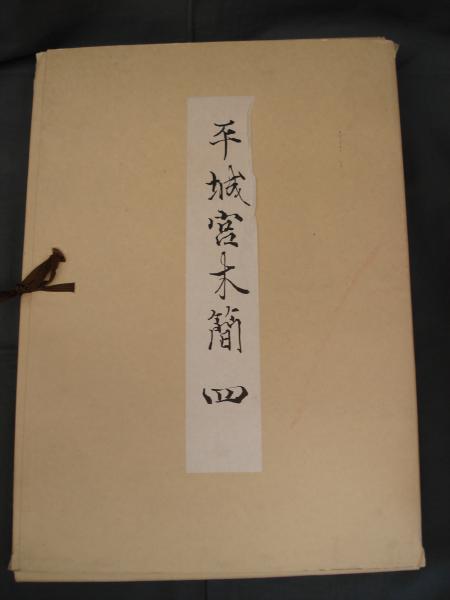 平城宮木簡 四